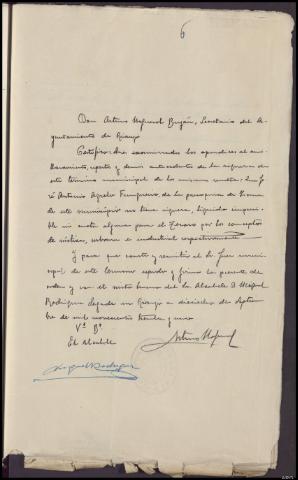 6
Don Arturo Magariños Bugán, Secretario del A-
yuntamiento de Rianjo
Certifico: Que examinados los apéndices al ami-
llaramiento, reparto y demás antecedentes de la riqueza de
este término municipal de los mismos resulta: Que Jo-
sé Antonio Agrelo Tempranes, de la parroquia de
de este municipio no tiene riqueza, líquido imponi-
ble ni cuota alguna para el Tesoro por los conceptos
de rústica, urbana e industrial respectivamente
Y para que conste y remitir al Sr Juez munici-
pal de este término expido y firmo la presente de
orden y con el visto bueno del Sr Alcalde D Miguel
Rodríguez dejada en Rianjo a dieciséis de Septiem-
bre de mil novecientos treinta y uno
Vº Bº
El Alcalde
Miguel Rodríguez
Arturo